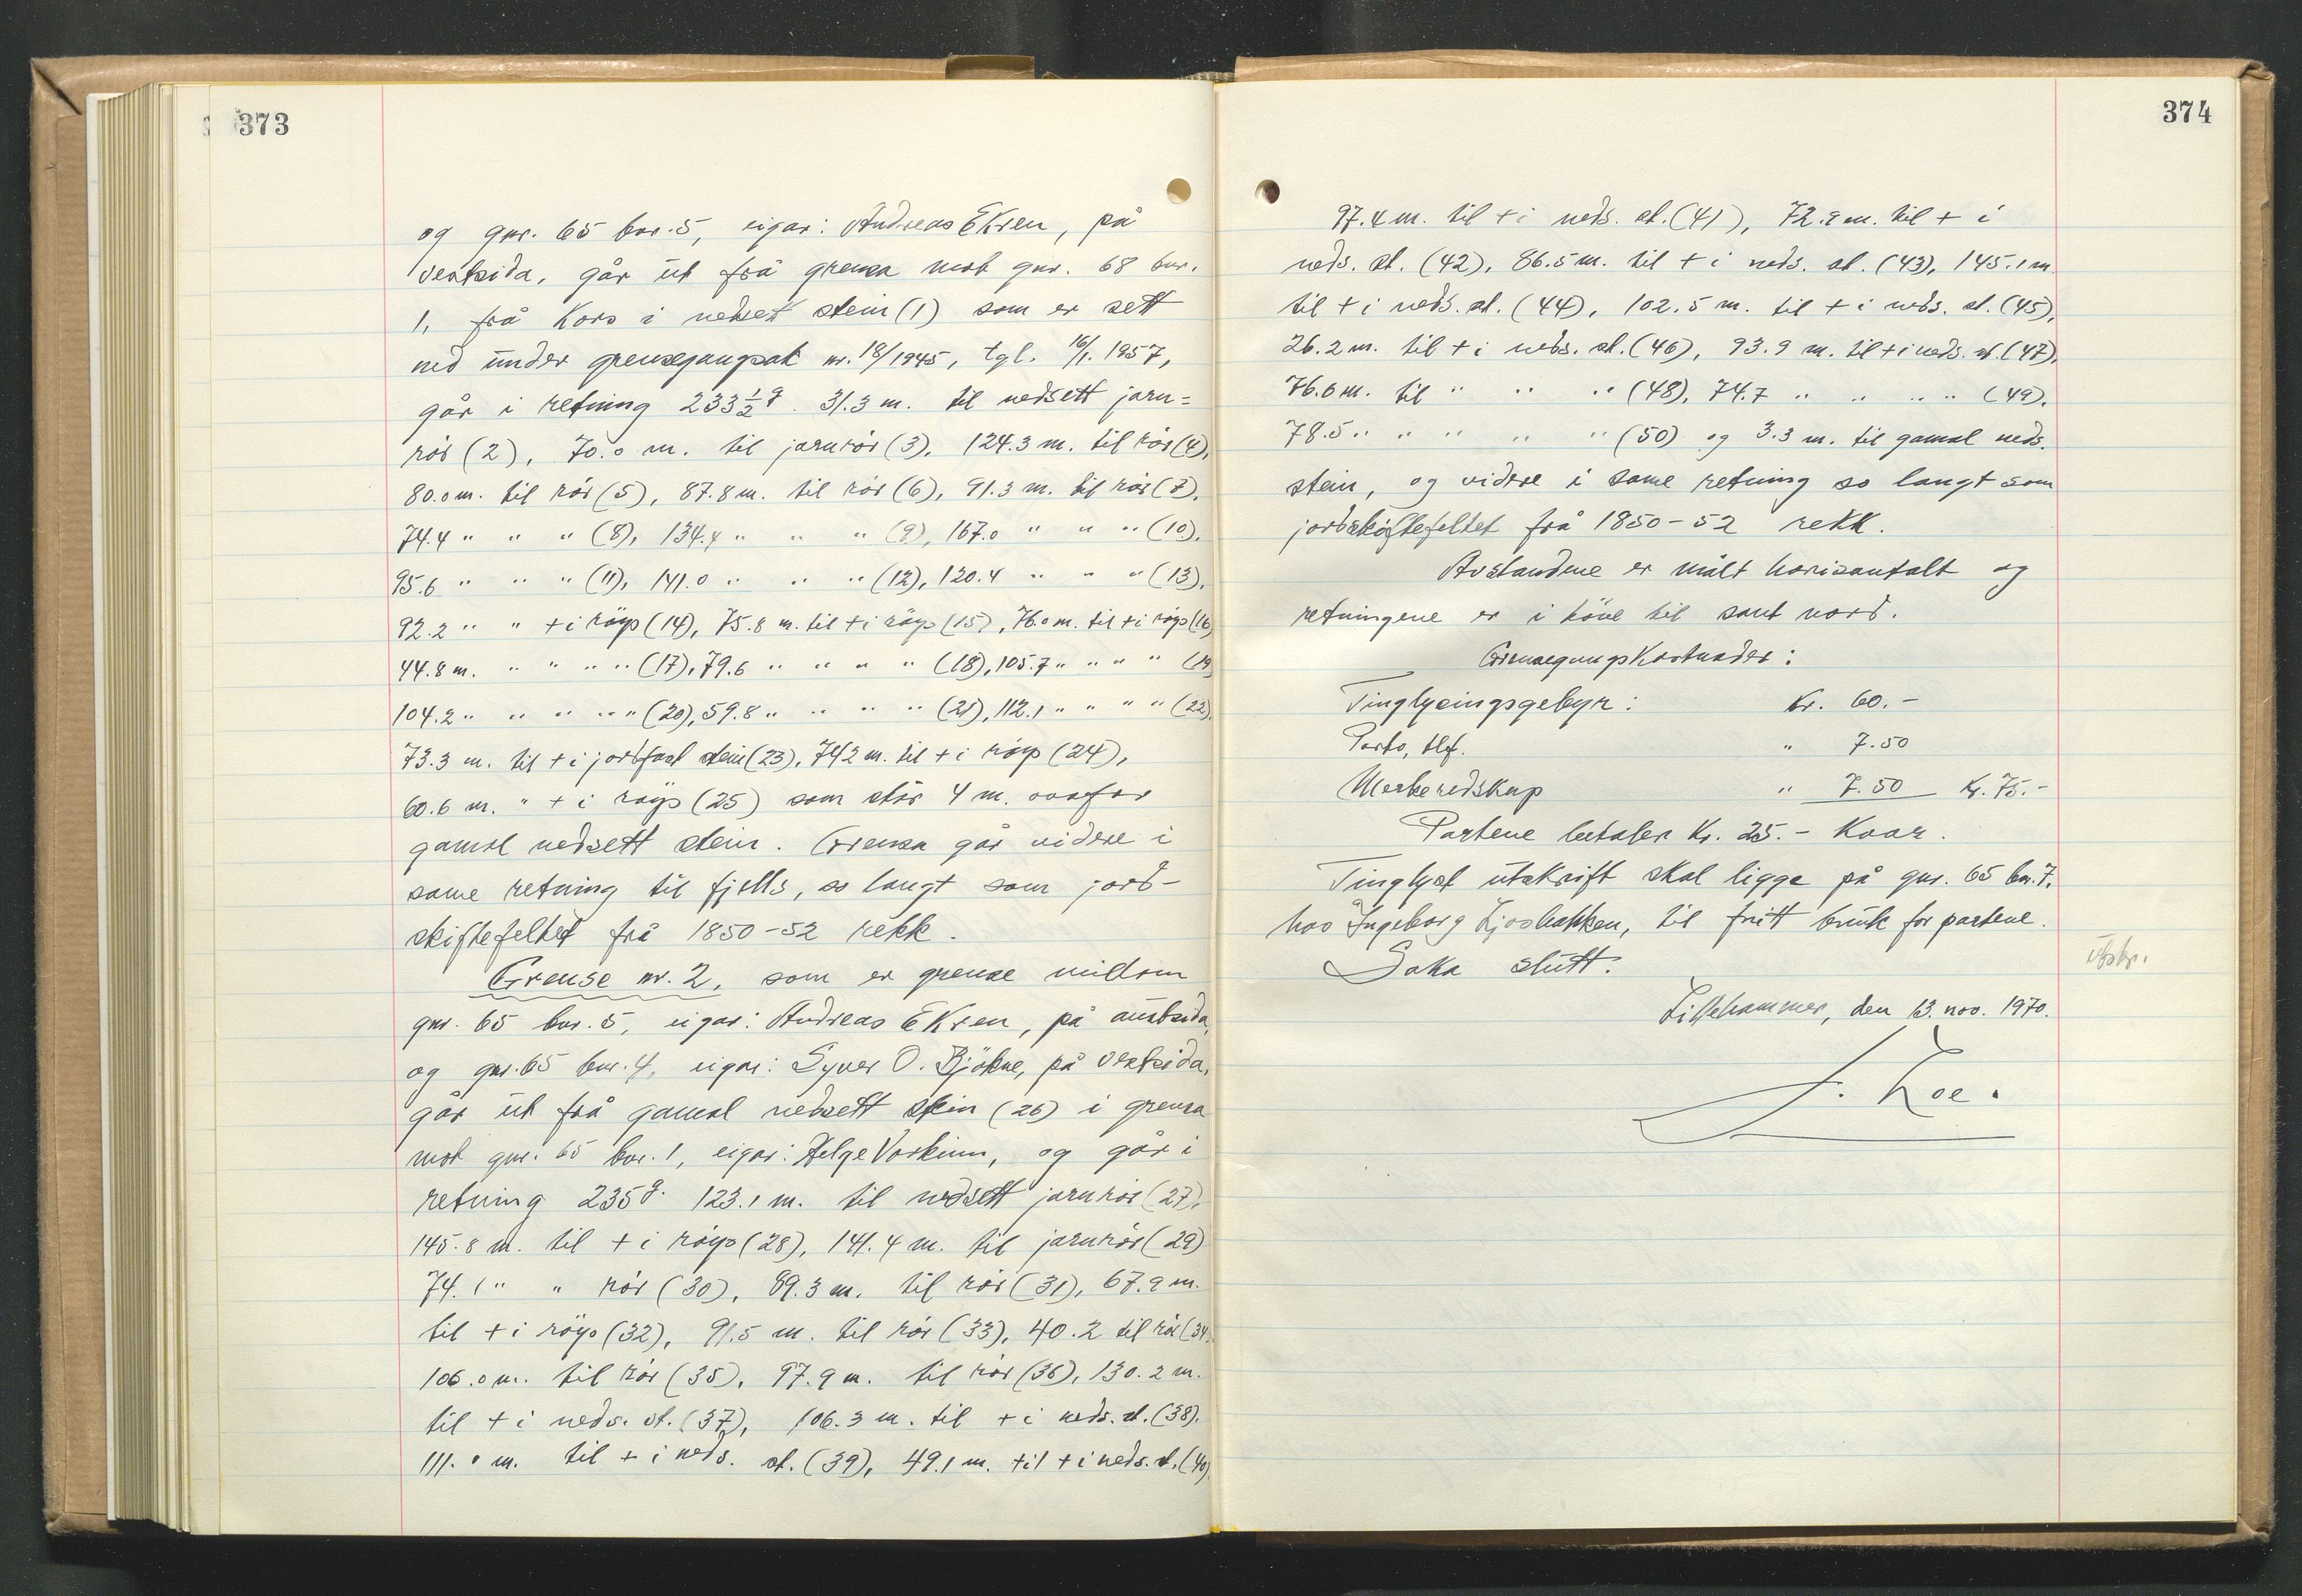 373
og gnr. 65 bnr. 5, eigar: Andreas Ekren, på
vestsida, går ut frå grensa mot gnr. 68 bnr.
1, frå kors i nedsett stein (1) som er sett
ned under grensegangsak nr. 18/1945, tgl. 16/1. 1957,
går i retning 233 1/2 g. 31.3 m. til nedsett jarn=
rör (2), 70.0 m. til jarnrör (3), 124.3 m. til rör (4),
80.0 m. til rör (5), 87.8 m. til rör (6), 91.3 m. til rör (7),
74.4 " " " (8), 134.4 " " " (9), 167.0 " " " (10),
95.6 " " " (11), 141.0 " " " (12), 120.4 " " " (13),
92.2 " " + i röys (14), 75.8 m. til + i röys (15), 76.0 m. til + i röys (16)
44.8 m. " " " " (17), 79.6 " " " " (18), 105.7 " " " " (19)
104.2 " " " " " (20), 59.8 " " " " (21), 112.1 " " " " (22),
73.3 m. til + i jordfast stein (23), 74.2 m. til + i röys (24),
60.6 m. " + i röys (25) som står 4 m. ovafor
gamal nedsett stein. Grensa går videre i
same retning til fjells, so langt som jord-
skiftefeltet frå 1850-52 rekk.
Grense nr. 2, som er grense millom
gnr. 65 bnr. 5, eigar: Andreas Ekren, på austsida,
og gnr. 65 bnr. 4, eigar: Syver O. Bjökne, på vestsida,
går ut frå gamal nedsett stein (26) i grensa
mot gnr. 65 bnr. 1, eigar: Helge Vorkinn, og går i
retning 235 g. 123.1 m. til nedsett jarnrör (27),
145.8 m. til + i röys (28), 141.4 m. til jarnrör (29)
74.1 " " rör (30), 89.3 m. til rör (31), 67.9 m.
til + i röys (32), 91.5 m. til rör (33), 40.2 til rör (34)
106.0 m. til rör (35), 97.9 m. til rör (36), 130.2 m.
til + i neds. st. (37), 106.3 m. til + i neds. st. (38),
111.0 m. til + i neds. st. (39), 49.1 m. til + i neds. st. (40)
374
97.4 m. til + i neds. st. (41), 72.2 m. til + i
neds. st. (42), 86.5 m. til + i neds. st. (43), 145.1 m
til + i neds. st. (44), 102.5 m. til + i neds. st. (45),
26.2 m. til + i neds. st. (46), 93.9 m. til + i neds. st. (47),
76.6 m. til " " " (48), 74.7 " " " " (49),
78.5 " " " " " (50) og 3.3 m. til gamal neds.
stein, og videre i same retning so langt som
jordskiftefeltet frå 1850-52 rekk.
Avstandene er målt horisontalt og
retningene er i höve til sant nord.
Grensegangskostnader:
Tinglysingsgebyr: kr. 60.-
Porto, tlf. " 7.50
Merkeredskap " 7.50 Kr. 75.-
Partene betaler Kr. 25.- kvar.
Tinglyst utskrift skal ligge på gnr. 65 bnr. 7,
hos Ingeborg Ljosbakken, til fritt bruk for partene.
Saka slutt.
utskr.
Lillehammer, den 13. nov. 1970.